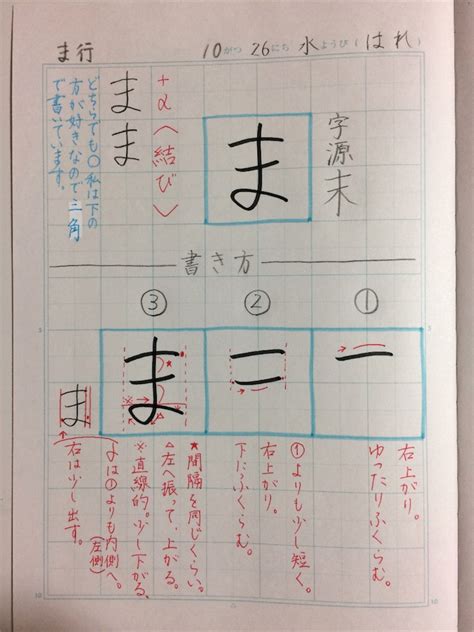 ま行
10がつ 26にち 水ようび(はれ)
字源 末
ま
+α〈結び〉
ま
ま
どちらでも〇 私は下の
方が好きなので三角
で書いています。
書き方
①
②
③
右上がり。
ゆったりふくらむ。
①よりも少し短く。
右上がり。
下にふくらむ。
ま
★間隔を同じくらい。
△左へ振って、上がる。
※直線的。少し下がる。
よは①よりも内側へ。
(左側)
右は少し出す。
ま